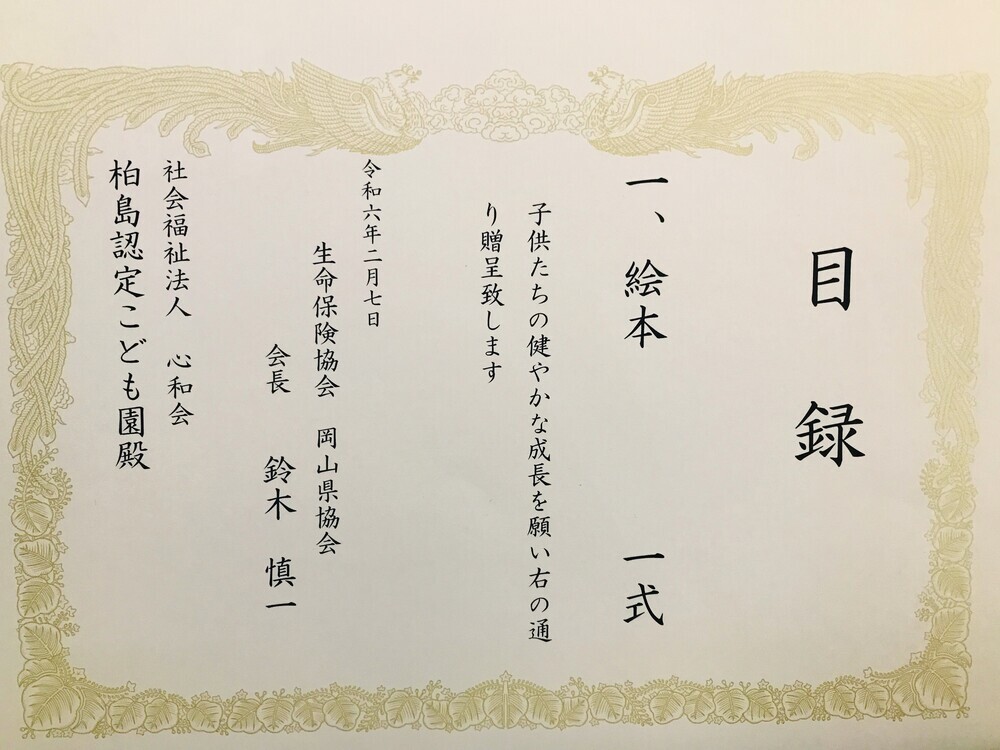 目録
一、絵本 一式
子供たちの健やかな成長を願い右の通
り贈呈致します
令和六年二月七日
生命保険協会 岡山県協会
会長 鈴木 慎一
社会福祉法人 心和会
柏島認定こども園殿